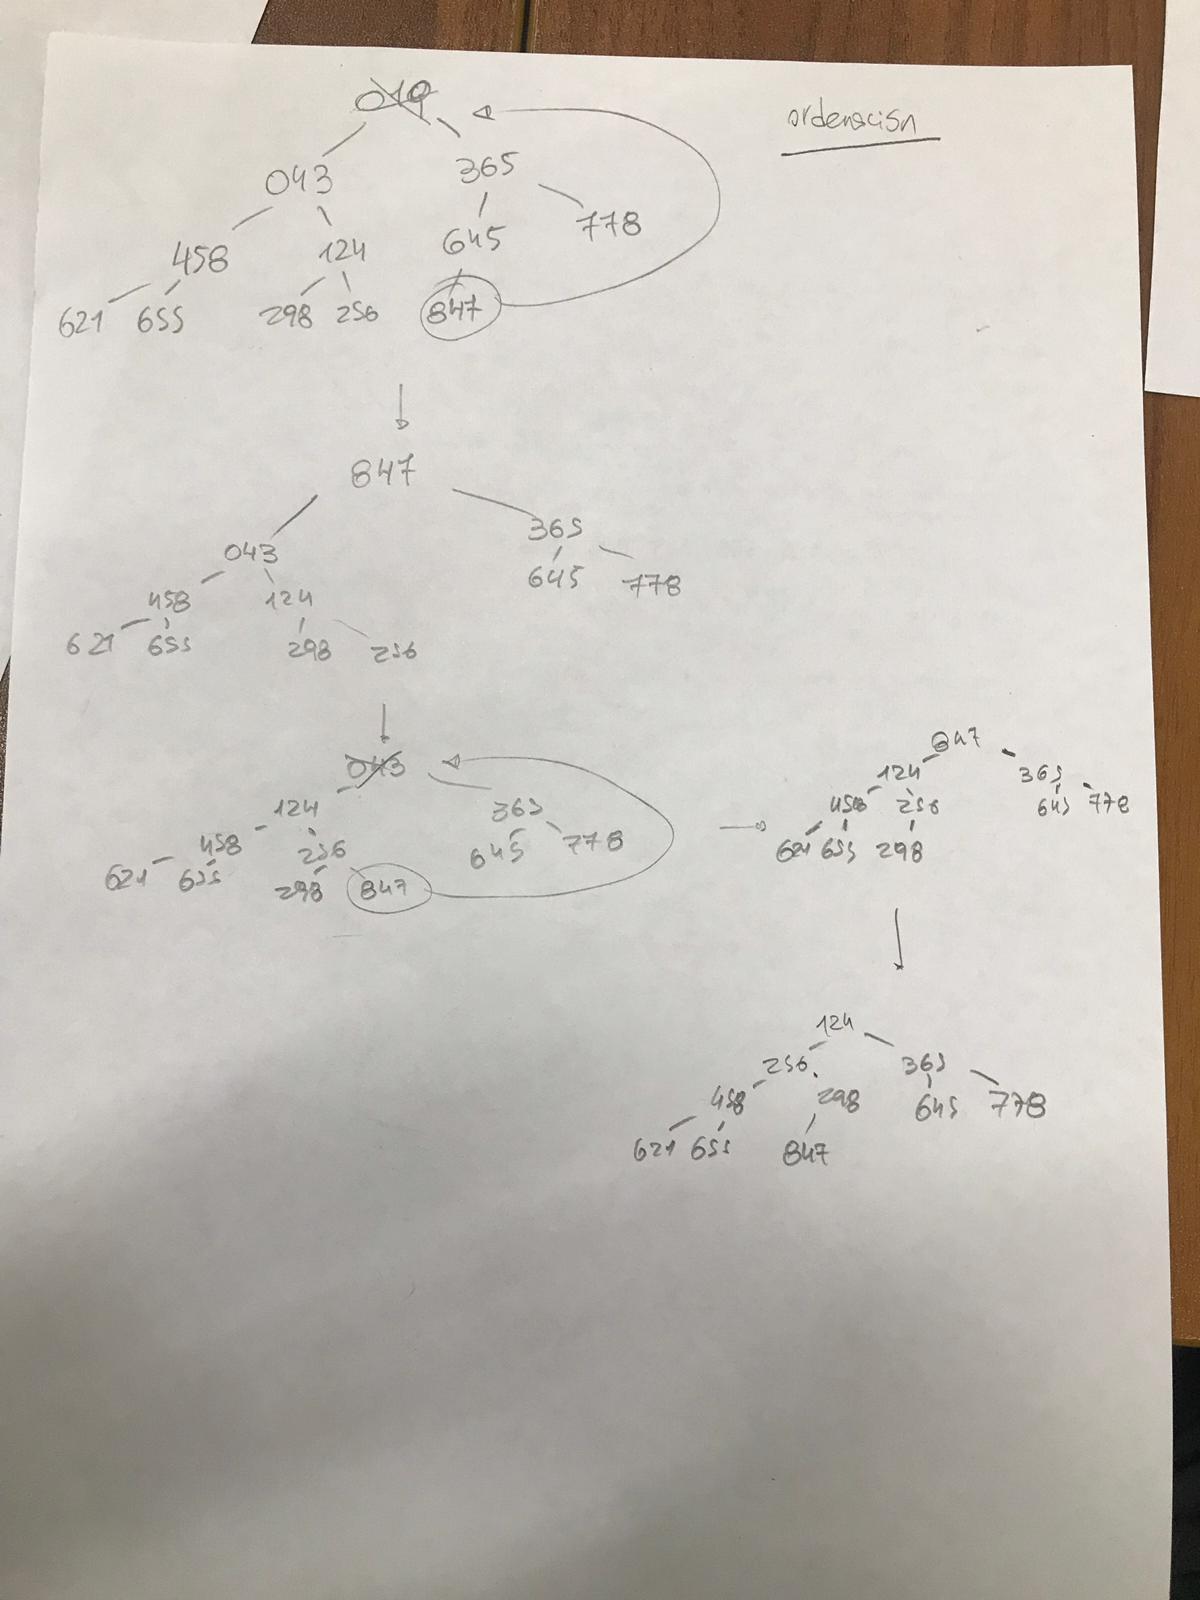 019
ordenación
043 365
458 124 645 778
621 655 298 256 847
847
043 365
458 124 645 778
621 655 298 256
043
124 365
458 256 645 778
621 655 298 847
847
124 365
458 256 645 778
621 655 298
124
256 365
458 298 645 778
621 655 847